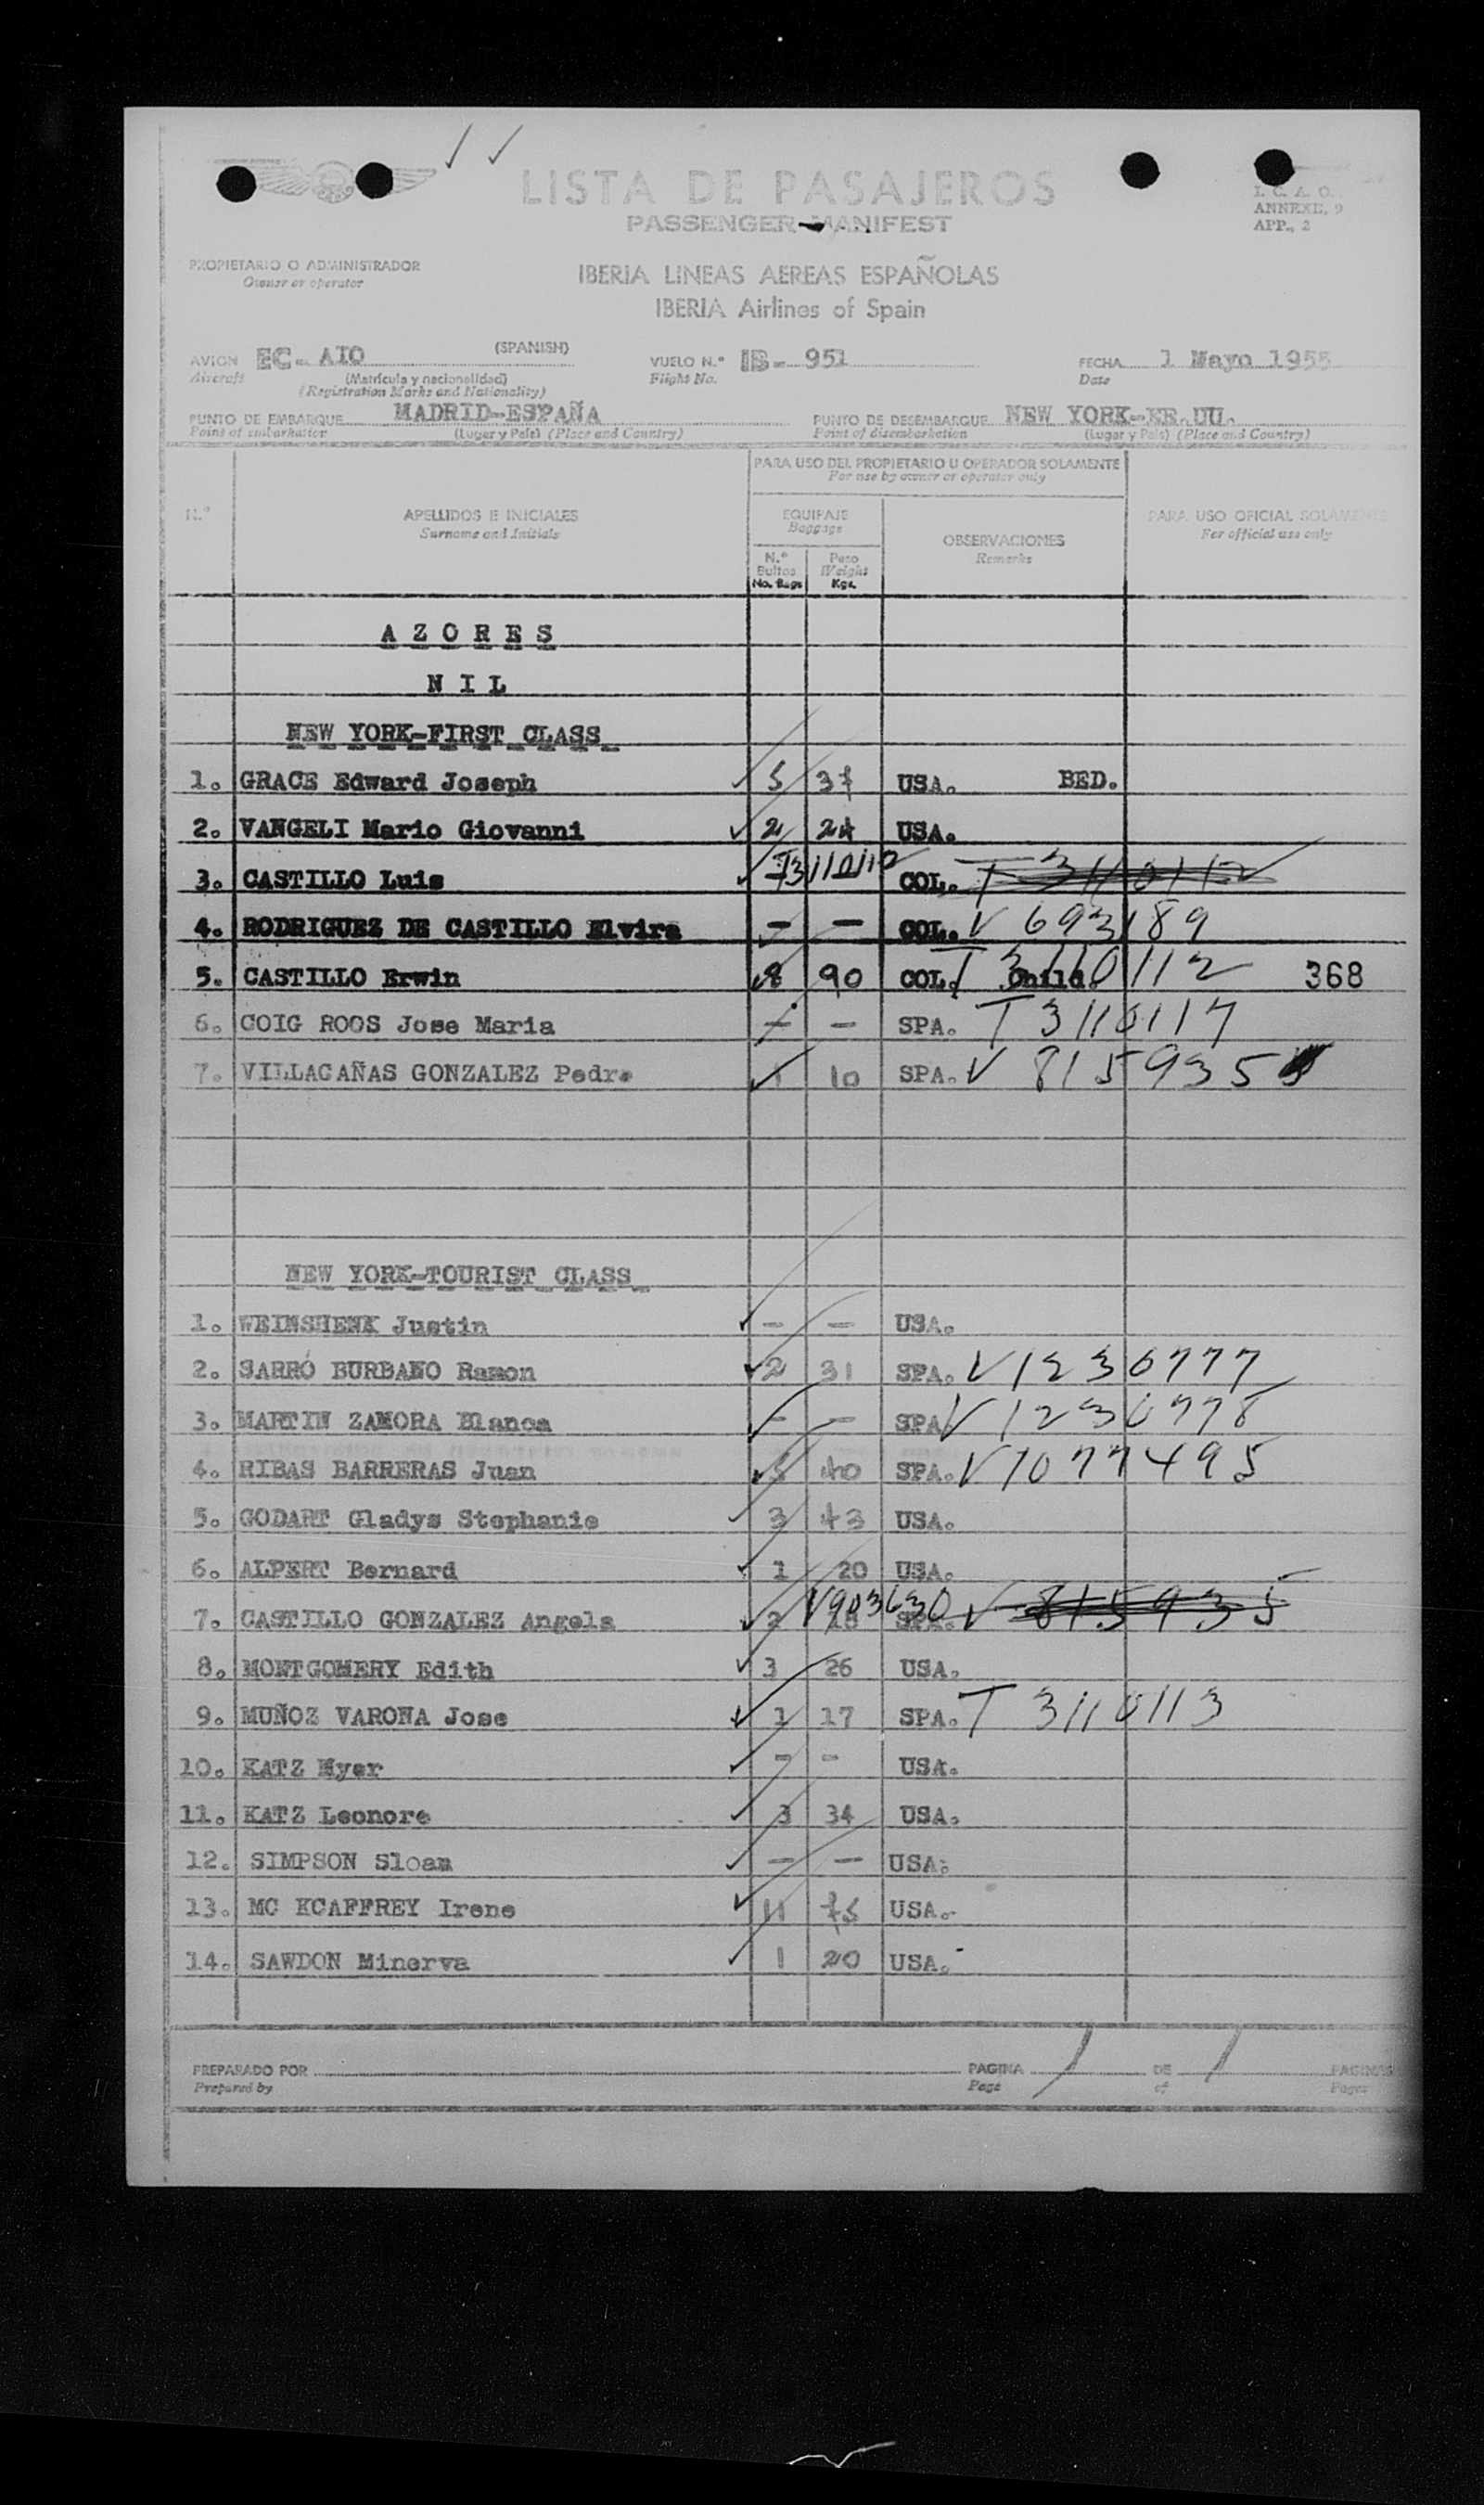 LISTA DE PASAJEROS
PASSENGER MANIFEST
I. C. A. O.
ANNEXE, 9
APP., 2
PROPIETARIO O ADMINISTRADOR
Owner or operator
IBERIA LINEAS AEREAS ESPAÑOLAS
IBERIA Airlines of Spain
AVION EC- AIO (SPANISH) VUELO N.º IB- 951 FECHA 1 Mayo 1955
Aircraft (Matrícula y nacionalidad) Flight No. Date
(Registration Marks and Nationality)
PUNTO DE EMBARQUE MADRID-ESPAÑA PUNTO DE DESEMBARQUE NEW YORK-EE.UU.
Point of embarkation (Lugar y País) (Place and Country) Point of disembarkation (Lugar y País) (Place and Country)
PARA USO DEL PROPIETARIO U OPERADOR SOLAMENTE
For use by owner or operator only
N.º APELLIDOS E INICIALES EQUIPAJE OBSERVACIONES PARA USO OFICIAL SOLAMENTE
Surname and Initials Baggage Remarks For official use only
N.º Bultos Peso
No. Bags Weight Kgs.
AZORES
NIL
NEW YORK-FIRST CLASS
1. GRACE Edward Joseph 5 USA. BED.
2. VANGELI Mario Giovanni 2 24 USA.
3. CASTILLO Luis COL. T 3110112
4. RODRIGUEZ DE CASTILLO Elvira - - COL. V 693189
5. CASTILLO Erwin 8 90 COL. Child. T 3110112 368
6. COIG ROOS Jose Maria - - SPA. T 3110117
7. VILLACAÑAS GONZALEZ Pedro 1 10 SPA. V 815935
NEW YORK-TOURIST CLASS
1. WEINSHENK Justin - - USA.
2. SARRÓ BURBANO Ramon 2 31 SPA. V 1230777
3. MARTIN ZAMORA Blanca - - SPA V 1230778
4. RIBAS BARRERAS Juan 40 SPA. V 1077495
5. GODART Gladys Stephanie 3 43 USA.
6. ALPERT Bernard 1 20 USA.
7. CASTILLO GONZALEZ Angela 2 18 V903630 SPA. V 815935
8. MONTGOMERY Edith 3 26 USA.
9. MUÑOZ VARONA Jose 1 17 SPA. T 3110113
10. KATZ Myer - - USA.
11. KATZ Leonore 3 34 USA.
12. SIMPSON Sloan - - USA.
13. MC KCAFFREY Irene 11 USA.
14. SAWDON Minerva 1 20 USA.
PREPARADO POR PAGINA 1 DE 1 PAGINAS
Prepared by Page of Pages